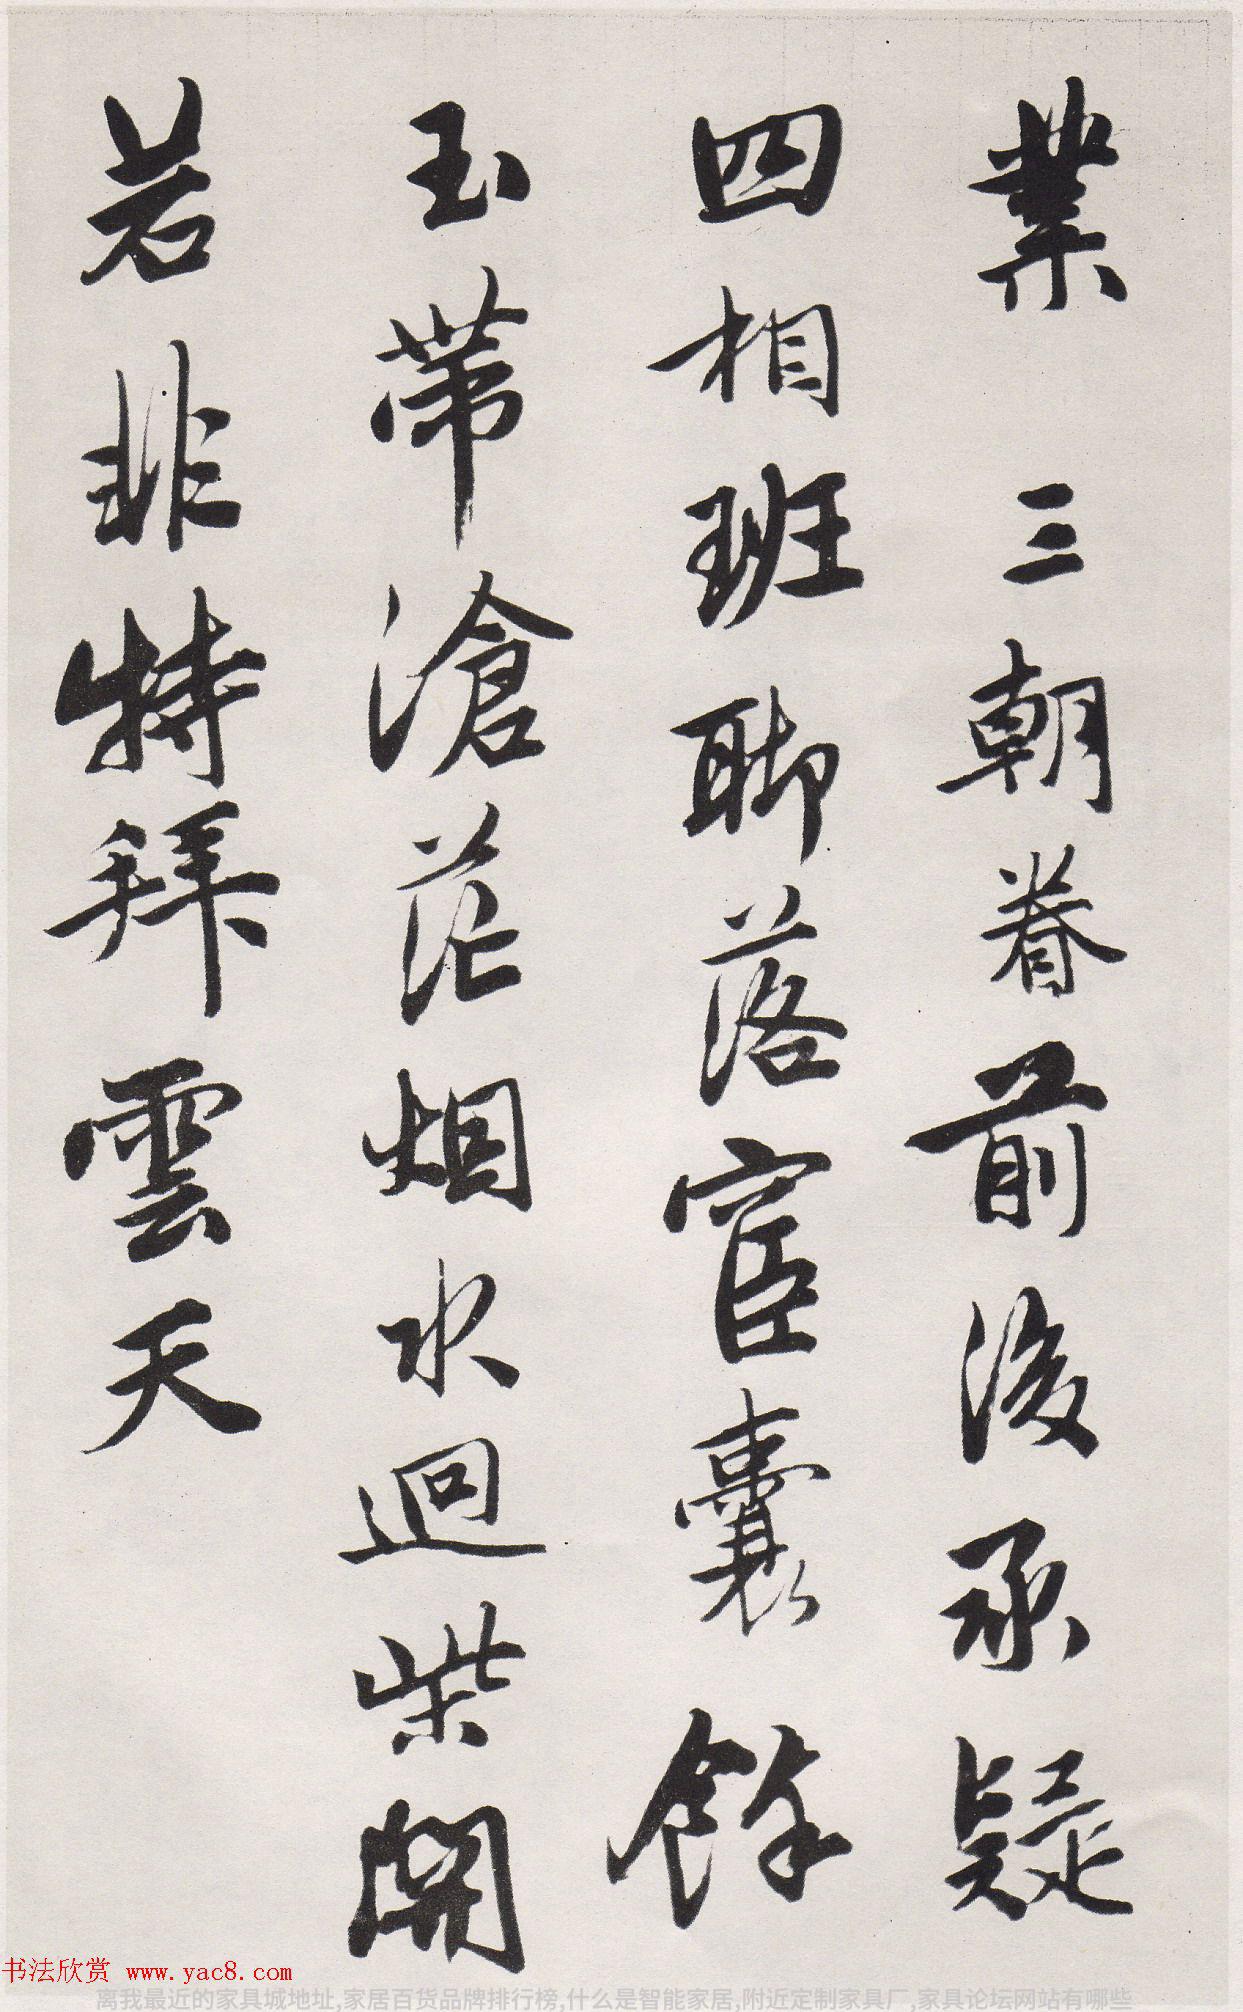 業 三朝眷前後承疑
四相班聊落宦囊餘
玉帶滄茫烟水迴柴關
若非特拜雲天
书法欣赏 www.yac8.com
离我最近的家具城地址,家居百货品牌排行榜,什么是智能家居,附近定制家具厂,家具论坛网站有哪些